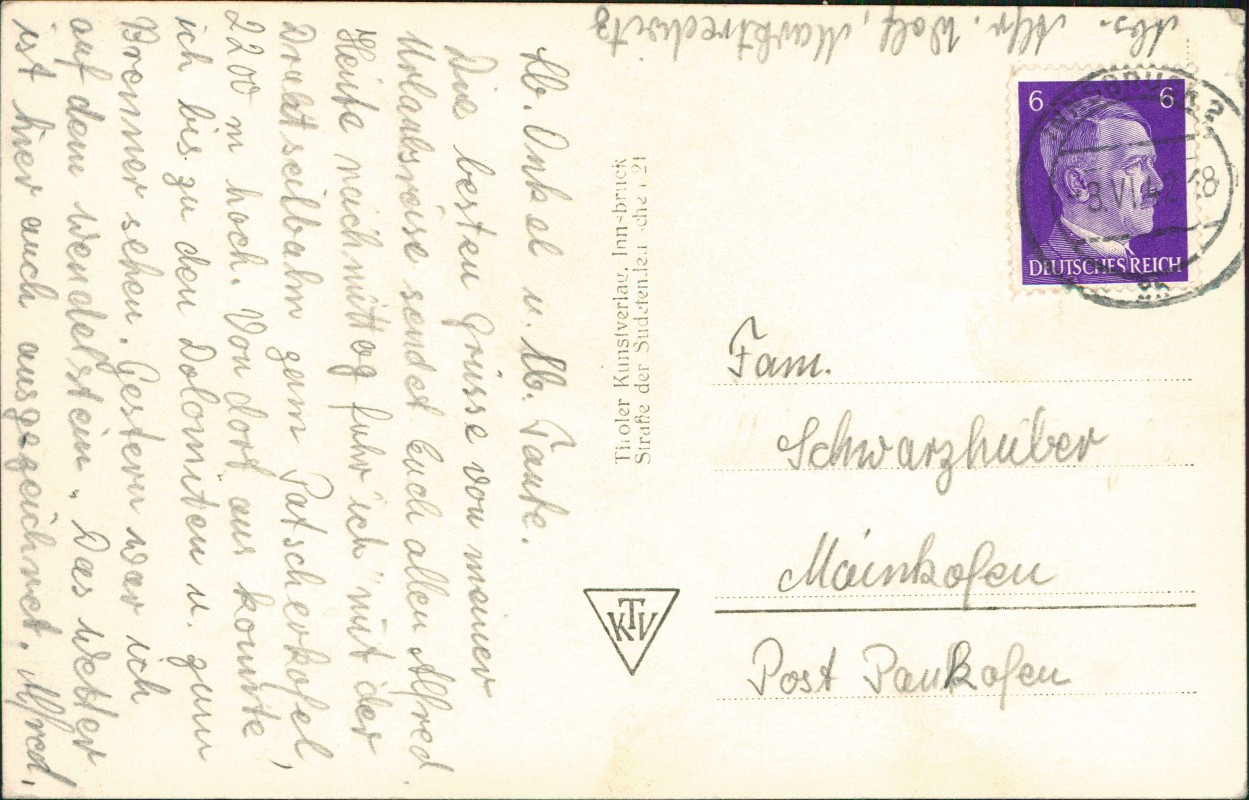 Abs. Alfr. Wolf, Marktredwitz
lb. Onkel u. lb. Tante.
Die besten Grüsse von meiner
Urlaubsreise sendet Euch allen Alfred.
Heute nachmittag fuhr ich mit der
Drahtseilbahn zum Patscherkofel,
2200 m hoch. Von dort aus konnte
ich bis zu den Dolomiten u. zum
Brenner sehen. Gestern war ich
auf dem Wendelstein. Das Wetter
ist hier auch ausgezeichnet. Alfred.
Tiroler Kunstverlag, Innsbruck
Straße der Sudetendeutschen 21
KTV
6 6
DEUTSCHES REICH
INNSBRUCK 2
8.VI.42.18
Fam.
Schwarzhuber
Mainkofen
Post Pankofen